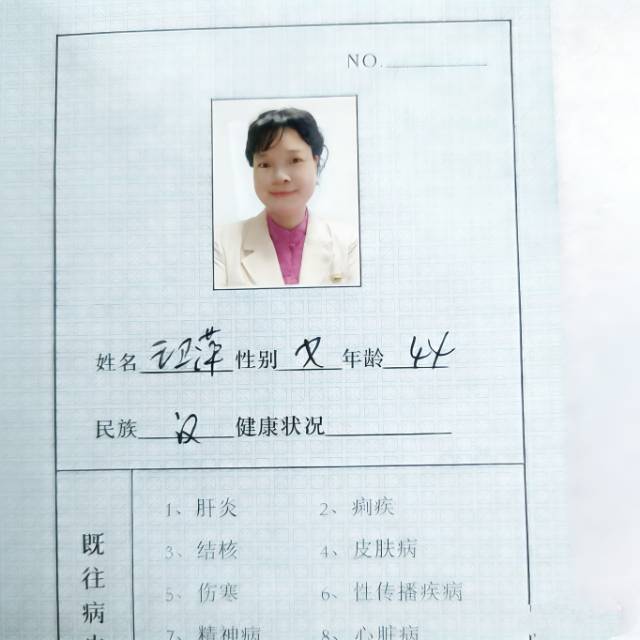 NO.
姓名 王卫萍 性别 女 年龄 44
民族 汉 健康状况
既往病史
1、肝炎 2、痢疾
3、结核 4、皮肤病
5、伤寒 6、性传播疾病
7、精神病 8、心脏病